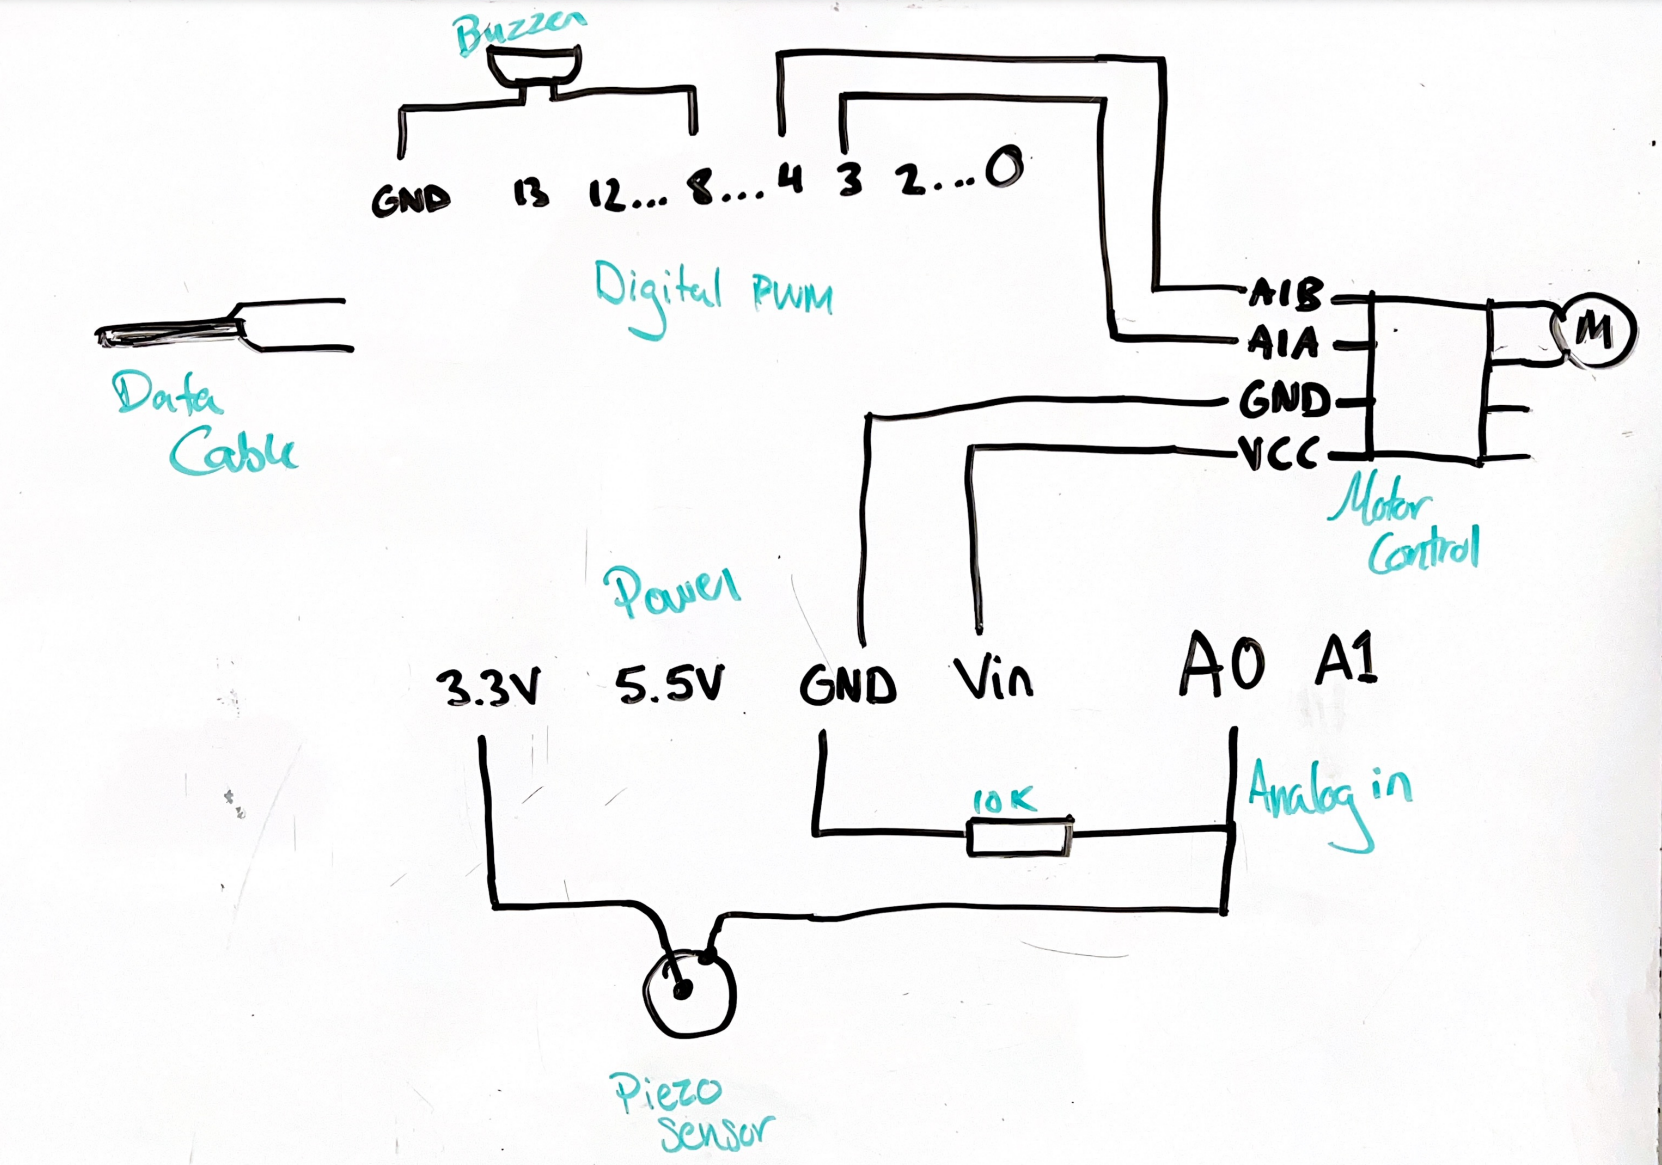 Buzzer
GND 13 12... 8... 4 3 2... 0
Digital PWM
A1B
A1A
GND
VCC
M
Data
Cable
Motor
Control
Power
3.3V 5.5V GND Vin A0 A1
10K
Analog in
Piezo
Sensor